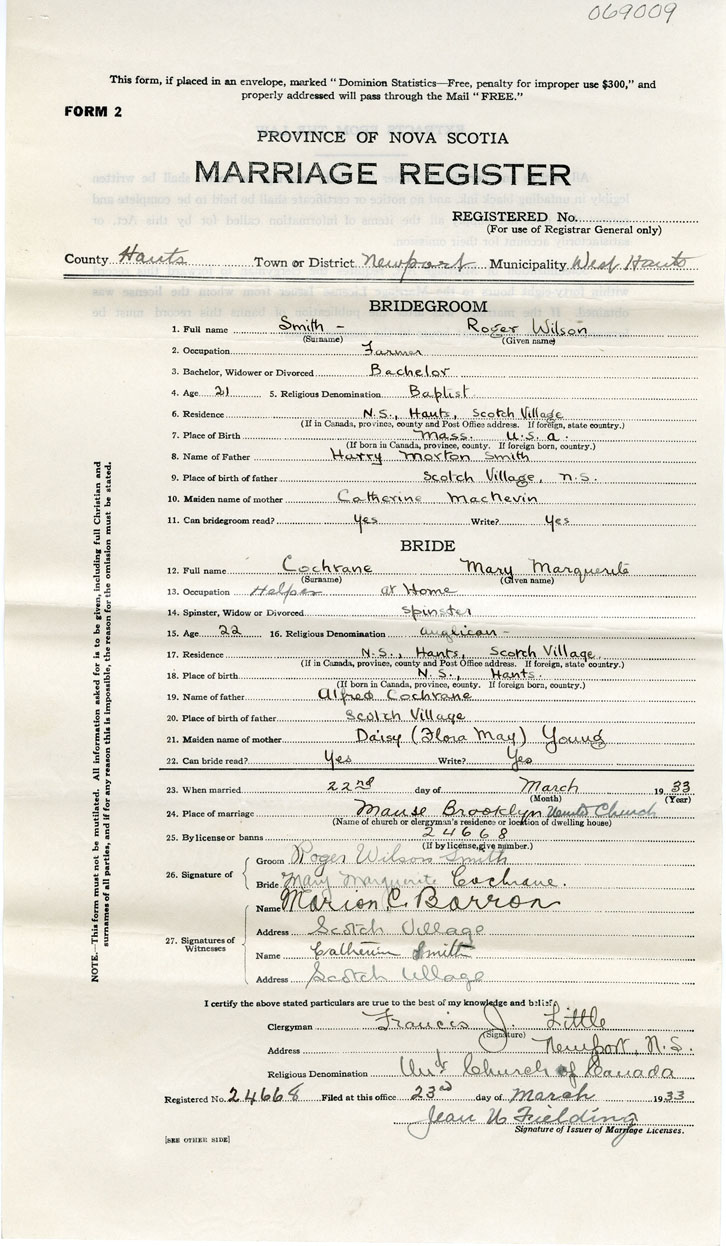 069009
This form, if placed in an envelope, marked "Dominion Statistics—Free, penalty for improper use $300," and
properly addressed will pass through the Mail "FREE."
FORM 2
PROVINCE OF NOVA SCOTIA
MARRIAGE REGISTER
REGISTERED No.
(For use of Registrar General only)
County Hants Town or District Newport Municipality West Hants
BRIDEGROOM
1. Full name Smith - Roger Wilson
(Surname) (Given name)
2. Occupation Farmer
3. Bachelor, Widower or Divorced Bachelor
4. Age 21 5. Religious Denomination Baptist
6. Residence N.S., Hants, Scotch Village
(If in Canada, province, county and Post Office address. If foreign, state country.)
7. Place of Birth Mass. U.S.a.
(If born in Canada, province, county. If foreign born, country.)
8. Name of Father Harry Morton Smith
9. Place of birth of father Scotch Village, n.s.
10. Maiden name of mother Catherine MacNevin
11. Can bridegroom read? Yes Write? Yes
BRIDE
12. Full name Cochrane Mary Marguerite
(Surname) (Given name)
13. Occupation Helper at Home
14. Spinster, Widow or Divorced spinster
15. Age 22 16. Religious Denomination anglican -
17. Residence N.S., Hants, Scotch Village
(If in Canada, province, county and Post Office address. If foreign, state country.)
18. Place of birth N.S., Hants.
(If born in Canada, province, county. If foreign born, country.)
19. Name of father Alfred Cochrane
20. Place of birth of father Scotch Village
21. Maiden name of mother Daisy (Flora May) Young
22. Can bride read? Yes Write? Yes
23. When married 22nd day of March 1933
(Month) (Year)
24. Place of marriage Manse Brooklyn Church
(Name of church or clergyman's residence or location of dwelling house)
25. By license or banns 24668
(If by license, give number.)
26. Signature of
Groom Roger Wilson Smith
Bride Mary Marguerite Cochrane.
27. Signatures of Witnesses
Name Marion C. Barron
Address Scotch Village
Name Catherine Smith
Address Scotch Village
I certify the above stated particulars are true to the best of my knowledge and belief.
Clergyman Francis J. Little
(Signature)
Address Newport, N.S.
Religious Denomination Un'd Church of Canada
Registered No. 24668 Filed at this office 23rd day of March 1933
Jean W Fielding
Signature of Issuer of Marriage Licenses.
[SEE OTHER SIDE]
NOTE.—This form must not be mutilated. All information asked for is to be given, including full Christian and
surnames of all parties, and if for any reason this is impossible, the reason for the omission must be stated.